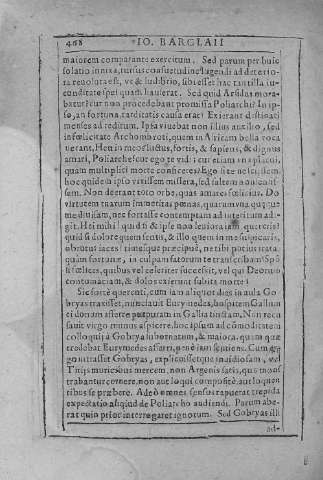 468 IO. BARCLAII
maiorem comparante exercitum. Sed parum per huic
solatio innixa, rursus consuetudine lugendi ad deterio-
ra reuoluta est, vt & ludibrio, sibi esset hac tantilla iu-
cunditate spei quam hauserat. Sed quid Arsidas mora-
batur? cur non procedebant promissa Poliarchi? In ip-
so, an fortuna, tarditatis causa erat? Exierant destinati
menses ad reditum. Ipsa viuebat non illius auxilio, sed
infœlicitate Archombroti, quem in Africam bella voca
uerant, Hen in me
amari, Poliarche! cur ego te vidi: cur etiam
quam multiplici morte conficeres? Ego si te
hoc quidem ipso vtilis essem mulsera, sed saltem non
sem. Non deerant toto orbe, quas amares fœlicius. Do
virtutem tuarum immeritas pœnas, quarum
me diuisam, nec fortasse contemptam ad interitum ad-
igit. Hei mihi! quid si & ipse non leuiora iam
quid si dolore quem sentis, & illo quem in me suspicaris,
obrutus iaces? itinesque præcipuè, ne tibi potius irata,
quàm fortunæ, in culpam fatorum te transcribam? Spō
si fœlices, quibus vel celeriter successit, vel qui Deorum
contumaciam, & dolos exierunt subita morte!
Sic fortè querenti, cum iam aliquot dies in aula Go
bryas traxisset, nunciauit Eurymedes, hospitem Gallum
ei donum afferre purpuram in Gallia tinctam. Non recu
sauit virgo munus aspicere, hoc ipsum ad cōmoditatem
colloquij à Gobrya subornatum, & maiora, quàm quæ
credebat Eurymedes afferri, penè iam sentiens. Cum
go intrasset Gobryas, explicuissetque insidiosam, vel
Titijs muricibus mercem, non Argenis satis, quo mons
trabantur cernere, non aut loqui composite, aut loquen
tibus se præbere. Adeò omnes sensus rapuerat trepida
expectatio aliquid de Poliarcho audiendi. Parum abe-
rat quin prior interrogaret ignorum. Sed Gobryas illi
ad-